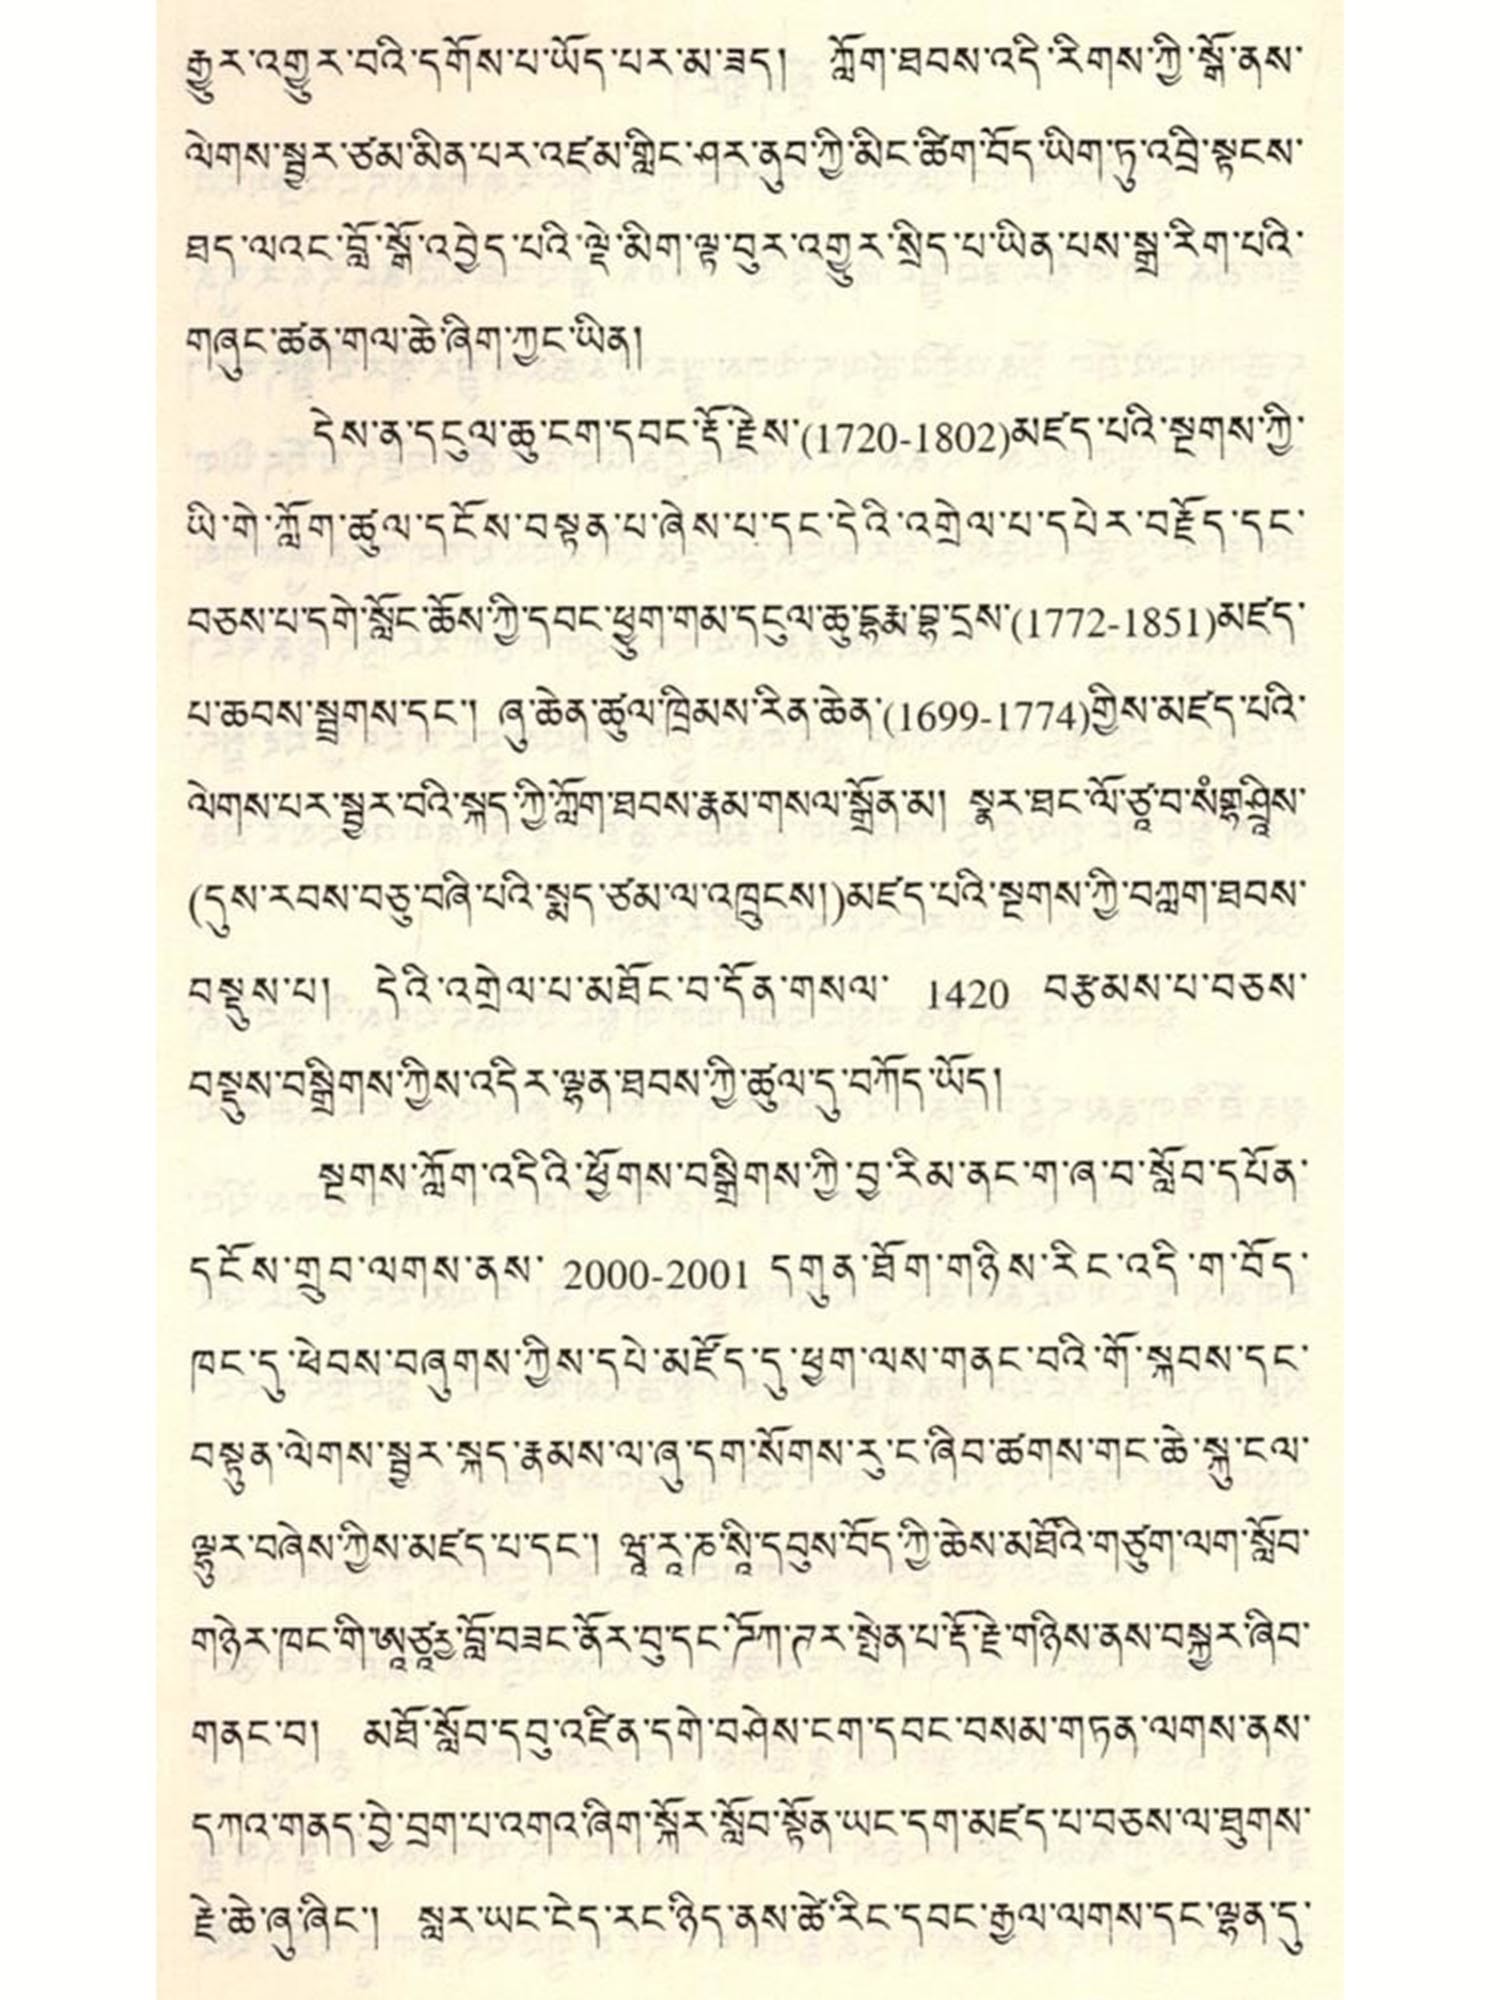 རྒྱུར་འགྱུར་བའི་དགོས་པ་ཡོད་པར་མ་ཟད། ཀློག་ཐབས་འདི་རིགས་ཀྱི་སྒོ་ནས་
ལེགས་སྦྱར་ཙམ་མིན་པར་འཛམ་གླིང་ཤར་ནུབ་ཀྱི་མིང་ཚིག་བོད་ཡིག་ཏུ་འབྲི་སྟངས་
ཐད་ལའང་བློ་སྒོ་འབྱེད་པའི་ལྡེ་མིག་ལྟ་བུར་འགྱུར་སྲིད་པ་ཡིན་པས་སྒྲ་རིག་པའི་
གཞུང་ཚན་གལ་ཆེ་ཞིག་ཀྱང་ཡིན།
དེས་ན་དངུལ་ཆུ་ངག་དབང་རྡོ་རྗེས་(1720-1802)མཛད་པའི་སྔགས་ཀྱི་
ཡི་གེ་ཀློག་ཚུལ་དངོས་བསྟན་པ་ཞེས་པ་དང་དེའི་འགྲེལ་པ་དཔེར་བརྗོད་དང་
བཅས་པ་དགེ་སློང་ཆོས་ཀྱི་དབང་ཕྱུག་གམ་དངུལ་ཆུ་དྷརྨ་བྷ་དྲས་(1772-1851)མཛད་
པ་ཆབས་སྦྲགས་དང་། ཞུ་ཆེན་ཚུལ་ཁྲིམས་རིན་ཆེན་(1699-1774)གྱིས་མཛད་པའི་
ལེགས་པར་སྦྱར་བའི་སྐད་ཀྱི་ཀློག་ཐབས་རྣམ་གསལ་སྒྲོན་མ། སྣར་ཐང་ལོ་ཙཱ་བ་སཾགྷ་ཤྲཱིས་
(དུས་རབས་བཅུ་བཞི་པའི་སྨད་ཙམ་ལ་འཁྲུངས།)མཛད་པའི་སྔགས་ཀྱི་བཀླག་ཐབས་
བསྡུས་པ། དེའི་འགྲེལ་པ་མཐོང་བ་དོན་གསལ་ 1420 བརྩམས་པ་བཅས་
བསྡུས་བསྒྲིགས་ཀྱིས་འདིར་ལྷན་ཐབས་ཀྱི་ཚུལ་དུ་བཀོད་ཡོད།
སྔགས་ཀློག་འདིའི་ཕྱོགས་བསྒྲིགས་ཀྱི་བྱ་རིམ་ནང་ག་ཞ་བ་སློབ་དཔོན་
དངོས་གྲུབ་ལགས་ནས་ 2000-2001 དགུན་ཐོག་གཉིས་རིང་འདི་ག་བོད་
ཁང་དུ་ཕེབས་བཞུགས་ཀྱིས་དཔེ་མཛོད་དུ་ཕྱག་ལས་གནང་བའི་གོ་སྐབས་དང་
བསྟུན་ལེགས་སྦྱར་སྐད་རྣམས་ལ་ཞུ་དག་སོགས་རུ་ང་ཞིབ་ཚགས་གང་ཆེ་སྐུ་ངལ་
ལྷུར་བཞེས་ཀྱིས་མཛད་པ་དང་། ཝཱ་རཱ་ཎ་སཱི་དབུས་བོད་ཀྱི་ཆེས་མཐོའི་གཙུག་ལག་སློབ་
གཉེར་ཁང་གི་ཨཱ་ཙཱརྱ་བློ་བཟང་ནོར་བུ་དང་ཌོཀ་ཊར་སྤེན་པ་རྡོ་རྗེ་གཉིས་ནས་བསྐྱར་ཞིབ་
གནང་བ། མཐོ་སློབ་དབུ་འཛིན་དགེ་བཤེས་ངག་དབང་བསམ་གཏན་ལགས་ནས་
དཀའ་གནད་བྱེ་བྲག་པ་འགའ་ཞིག་སྐོར་སློབ་སྟོན་ཡང་དག་མཛད་པ་བཅས་ལ་ཐུགས་
རྗེ་ཆེ་ཞུ་ཞིང་། སླར་ཡང་ངེད་རང་ཉིད་ནས་ཚེ་རིང་དབང་རྒྱལ་ལགས་དང་ལྷན་དུ་